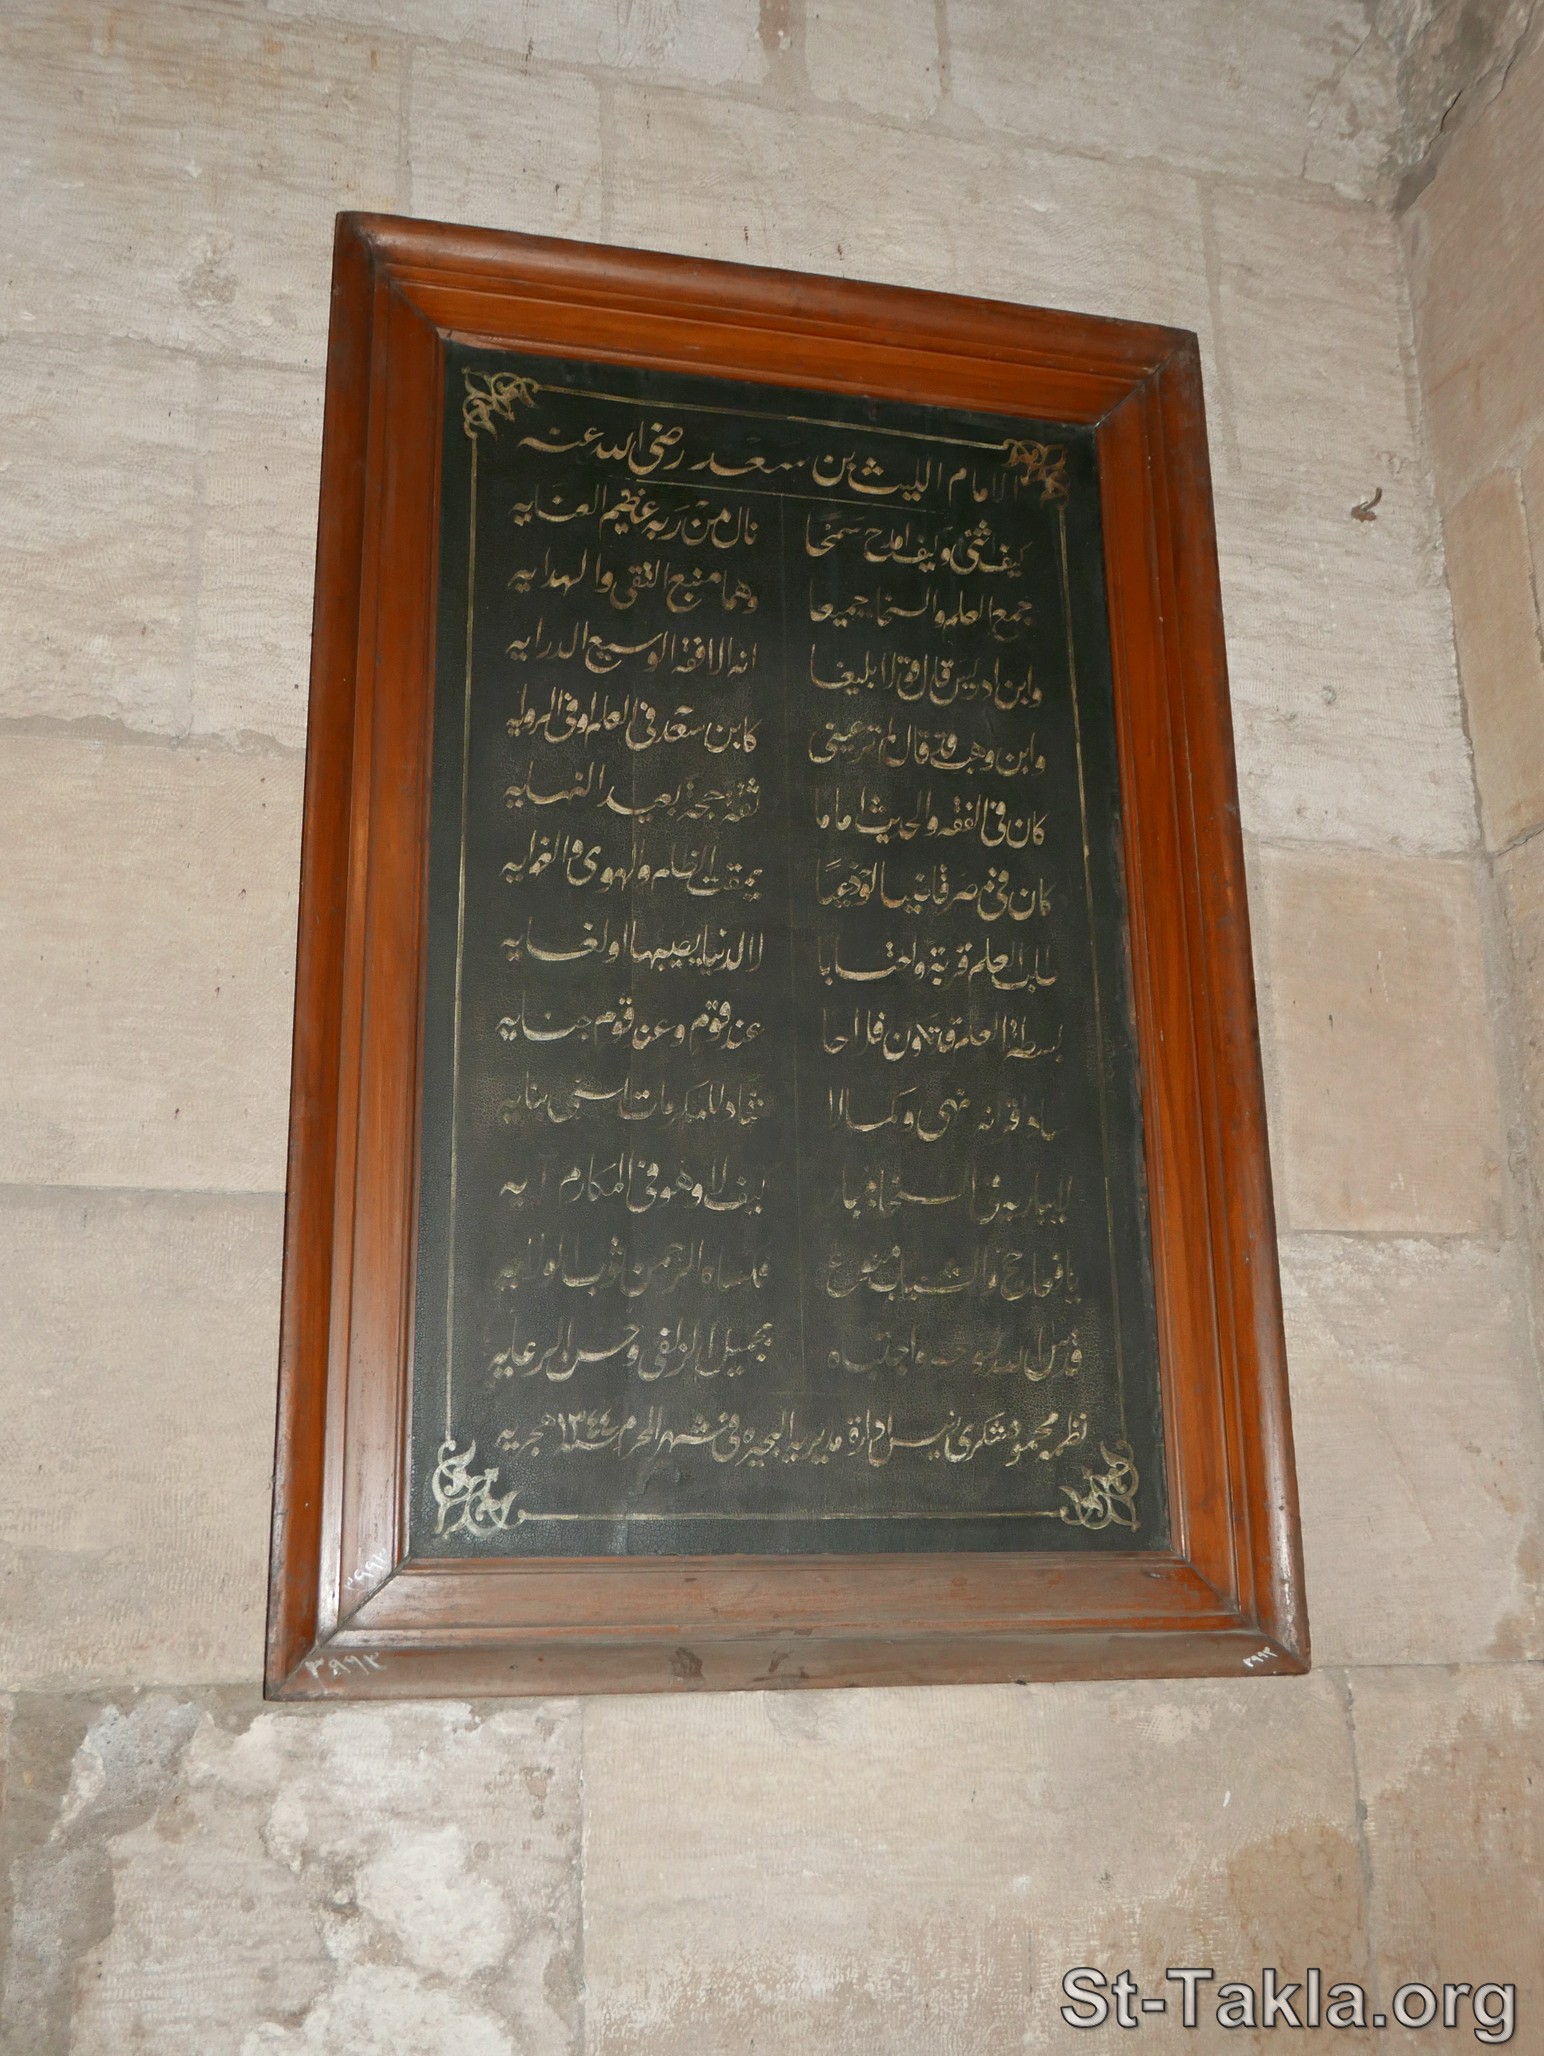 الامام الليث بن سعد رضى الله عنه
كيف اثنى وكيف امدح سمحا نال من ربه عظيم العنايه
جمع العلم والسخا جميعا وهما منبع التقى والهدايه
وابن ادريس قال قولا بليغا انه الافقه الوسيع الدرايه
وابن وهب قد قال لم تر عينى كابن سعد فى العلم او فى الروايه
كان فى الفقه والحديث اماما ثقة حجة بعيد النهايه
كان فى مصر قاضيا لوذعيا يمقت الظلم والهوى والغوايه
طلب العلم قربة واحتسابا لا لدنيا يصيبها او لغايه
بسطة العلم قد تكون فلاحا عند قوم وعند قوم جنايه
ساد اقرانه نهى وكمالا شاد للمكرمات اسمى بنايه
لا يباريه فى السخاء كيف لا وهو فى المكارم آيه
الرحمن ثوب
قدس الله اجتباه بجميل الزلفى وحسن الرعايه
نظمه محمود شكرى رئيس ادارة مديرية البحيره فى شهر المحرم سنة ١٣٤٤ هجريه
٣٩٩٣
٣٩٩٣
٣٩٩٣
St-Takla.org